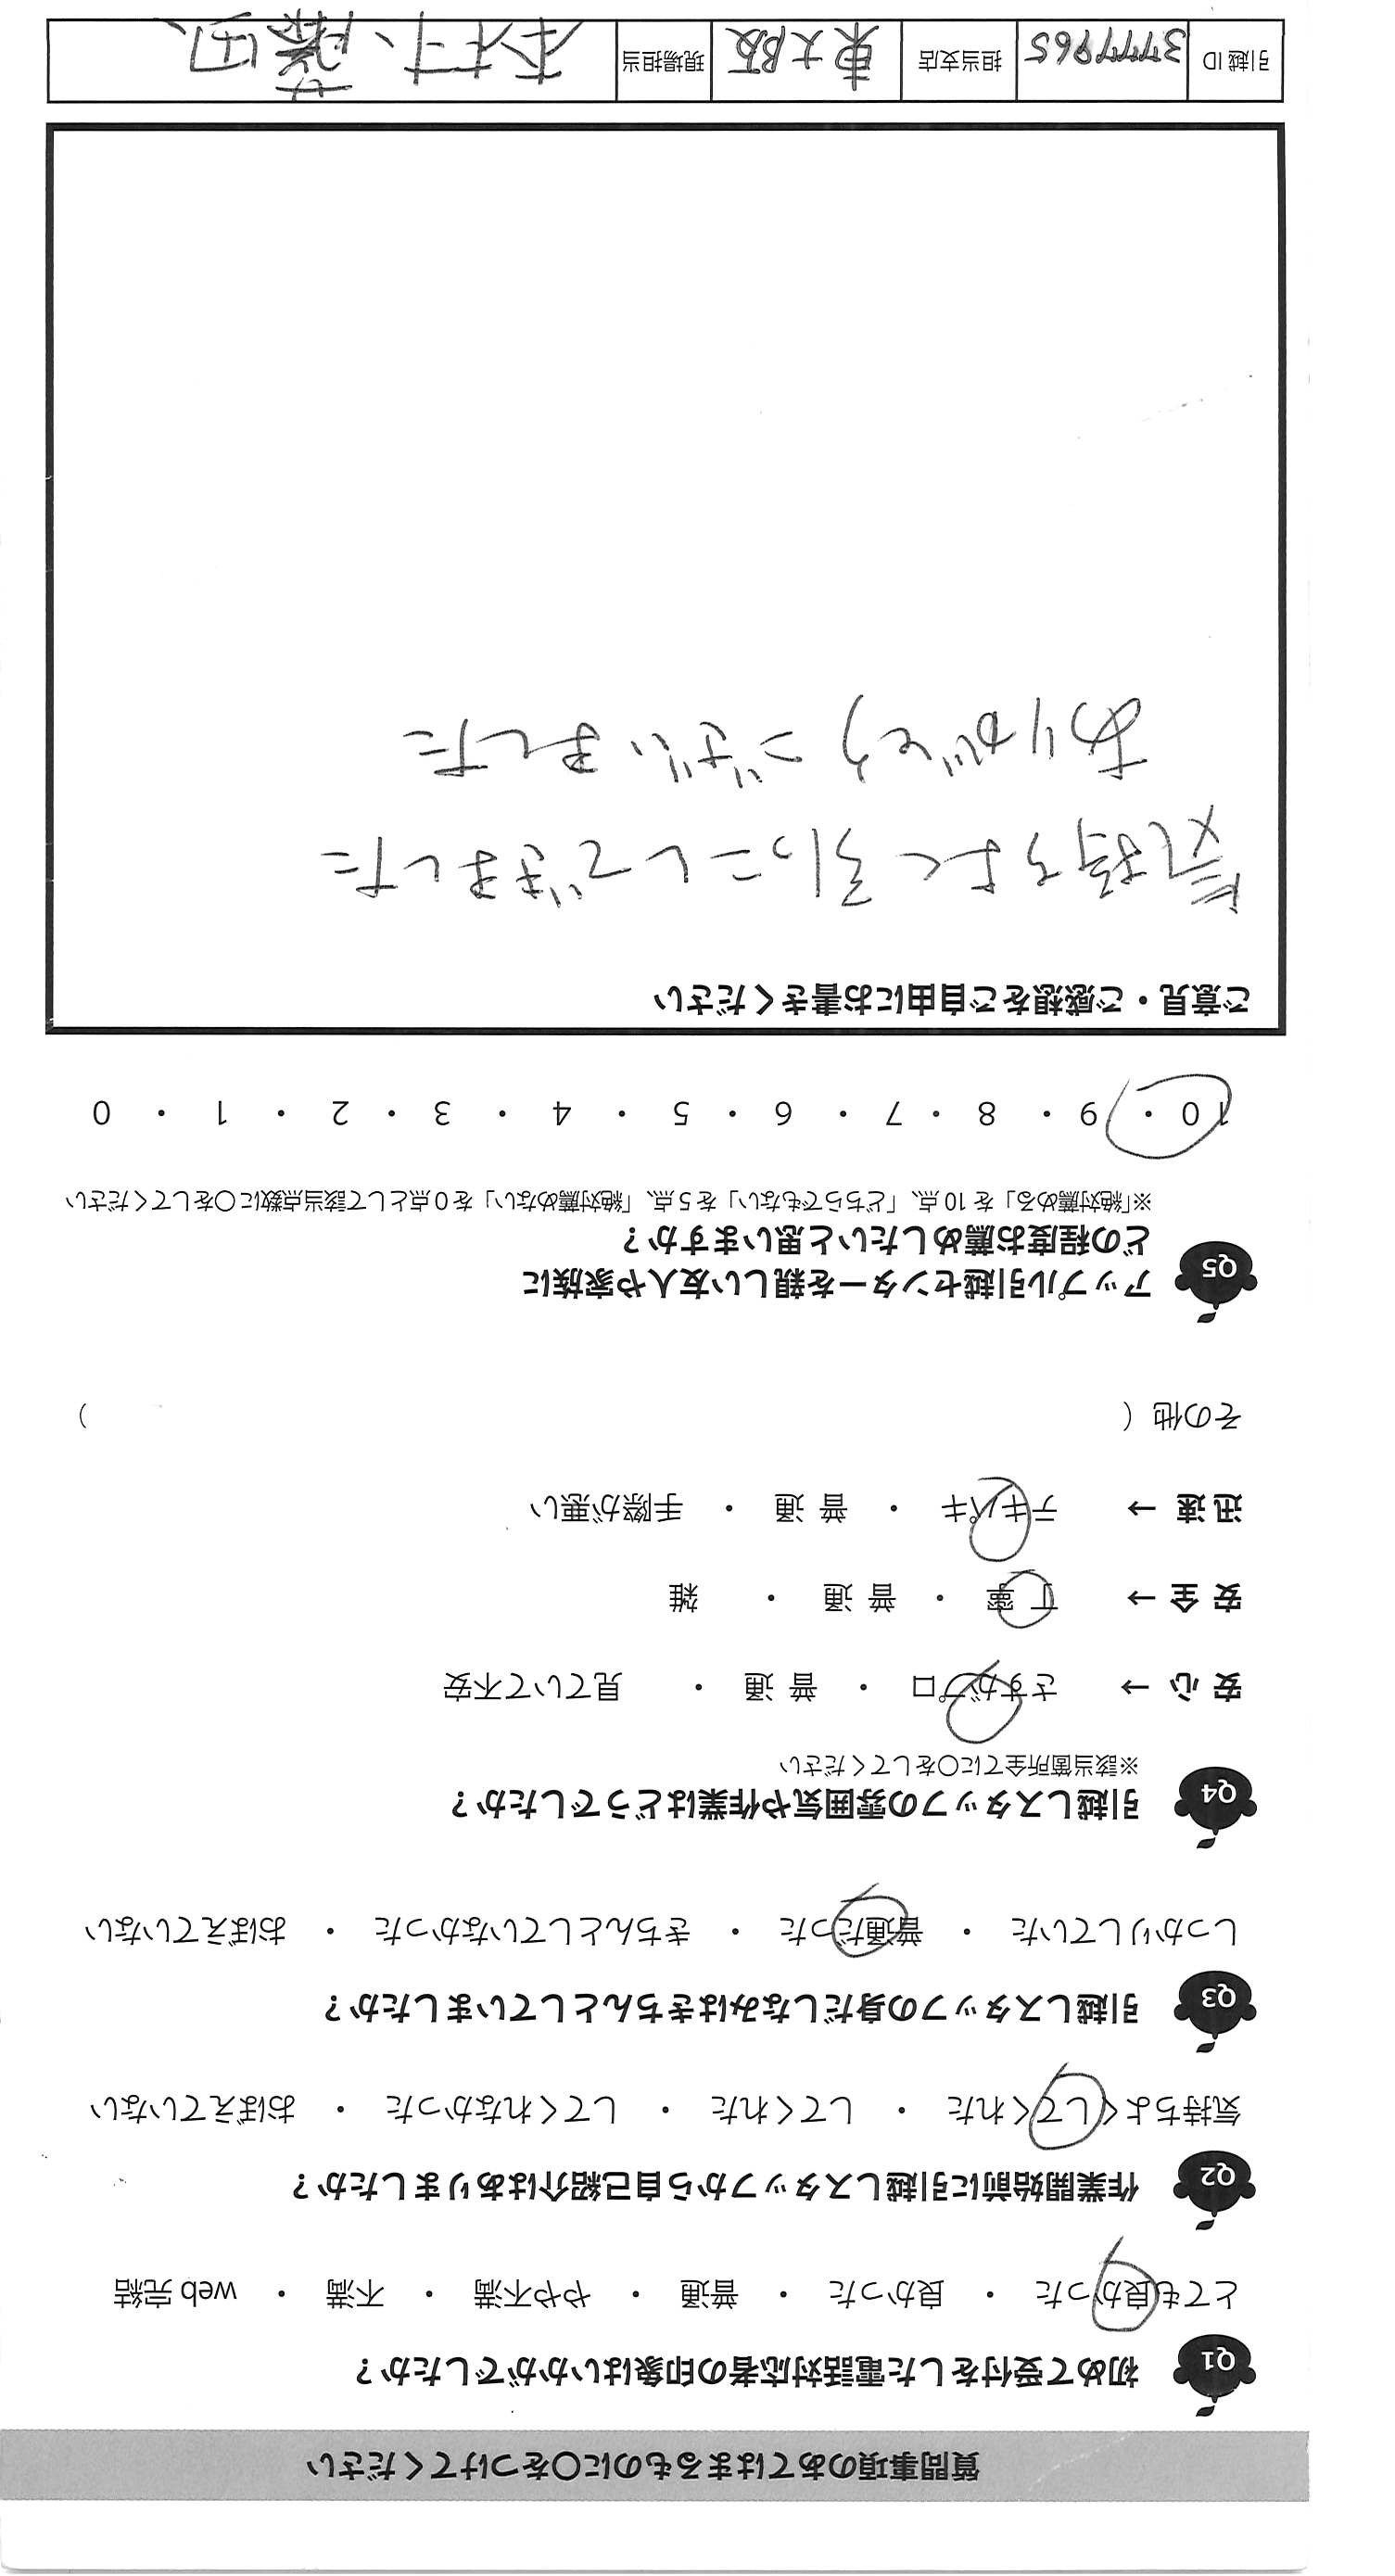 質問事項のあてはまるものに〇をつけてください
Q1 初めて受付をした電話対応者の印象はいかがでしたか？
とても良かった ・ 良かった ・ 普通 ・ やや不満 ・ 不満 ・ web 完結
Q2 作業開始前に引越しスタッフから自己紹介はありましたか？
気持ちよくしてくれた ・ してくれた ・ してくれなかった ・ おぼえていない
Q3 引越しスタッフの身だしなみはきちんとしていましたか？
しっかりしていた ・ 普通だった ・ きちんとしていなかった ・ おぼえていない
Q4 引越しスタッフの雰囲気や作業はどうでしたか？
※該当箇所全てに〇をしてください
安 心 → さすがプロ ・ 普 通 ・ 見ていて不安
安 全 → 丁 寧 ・ 普 通 ・ 雑
迅 速 → テキパキ ・ 普 通 ・ 手際が悪い
その他（ ）
Q5 アップル引越センターを親しい友人や家族に
どの程度お薦めしたいと思いますか？
※「絶対薦める」を 10 点、「どちらでもない」を 5 点、「絶対薦めない」を 0 点として該当点数に〇をしてください
10 ・ 9 ・ 8 ・ 7 ・ 6 ・ 5 ・ 4 ・ 3 ・ 2 ・ 1 ・ 0
ご意見・ご感想をご自由にお書きください
気持ちよく引っこしできました
ありがとうございました
引越 ID 担当支店 東大阪 現場担当 藤田